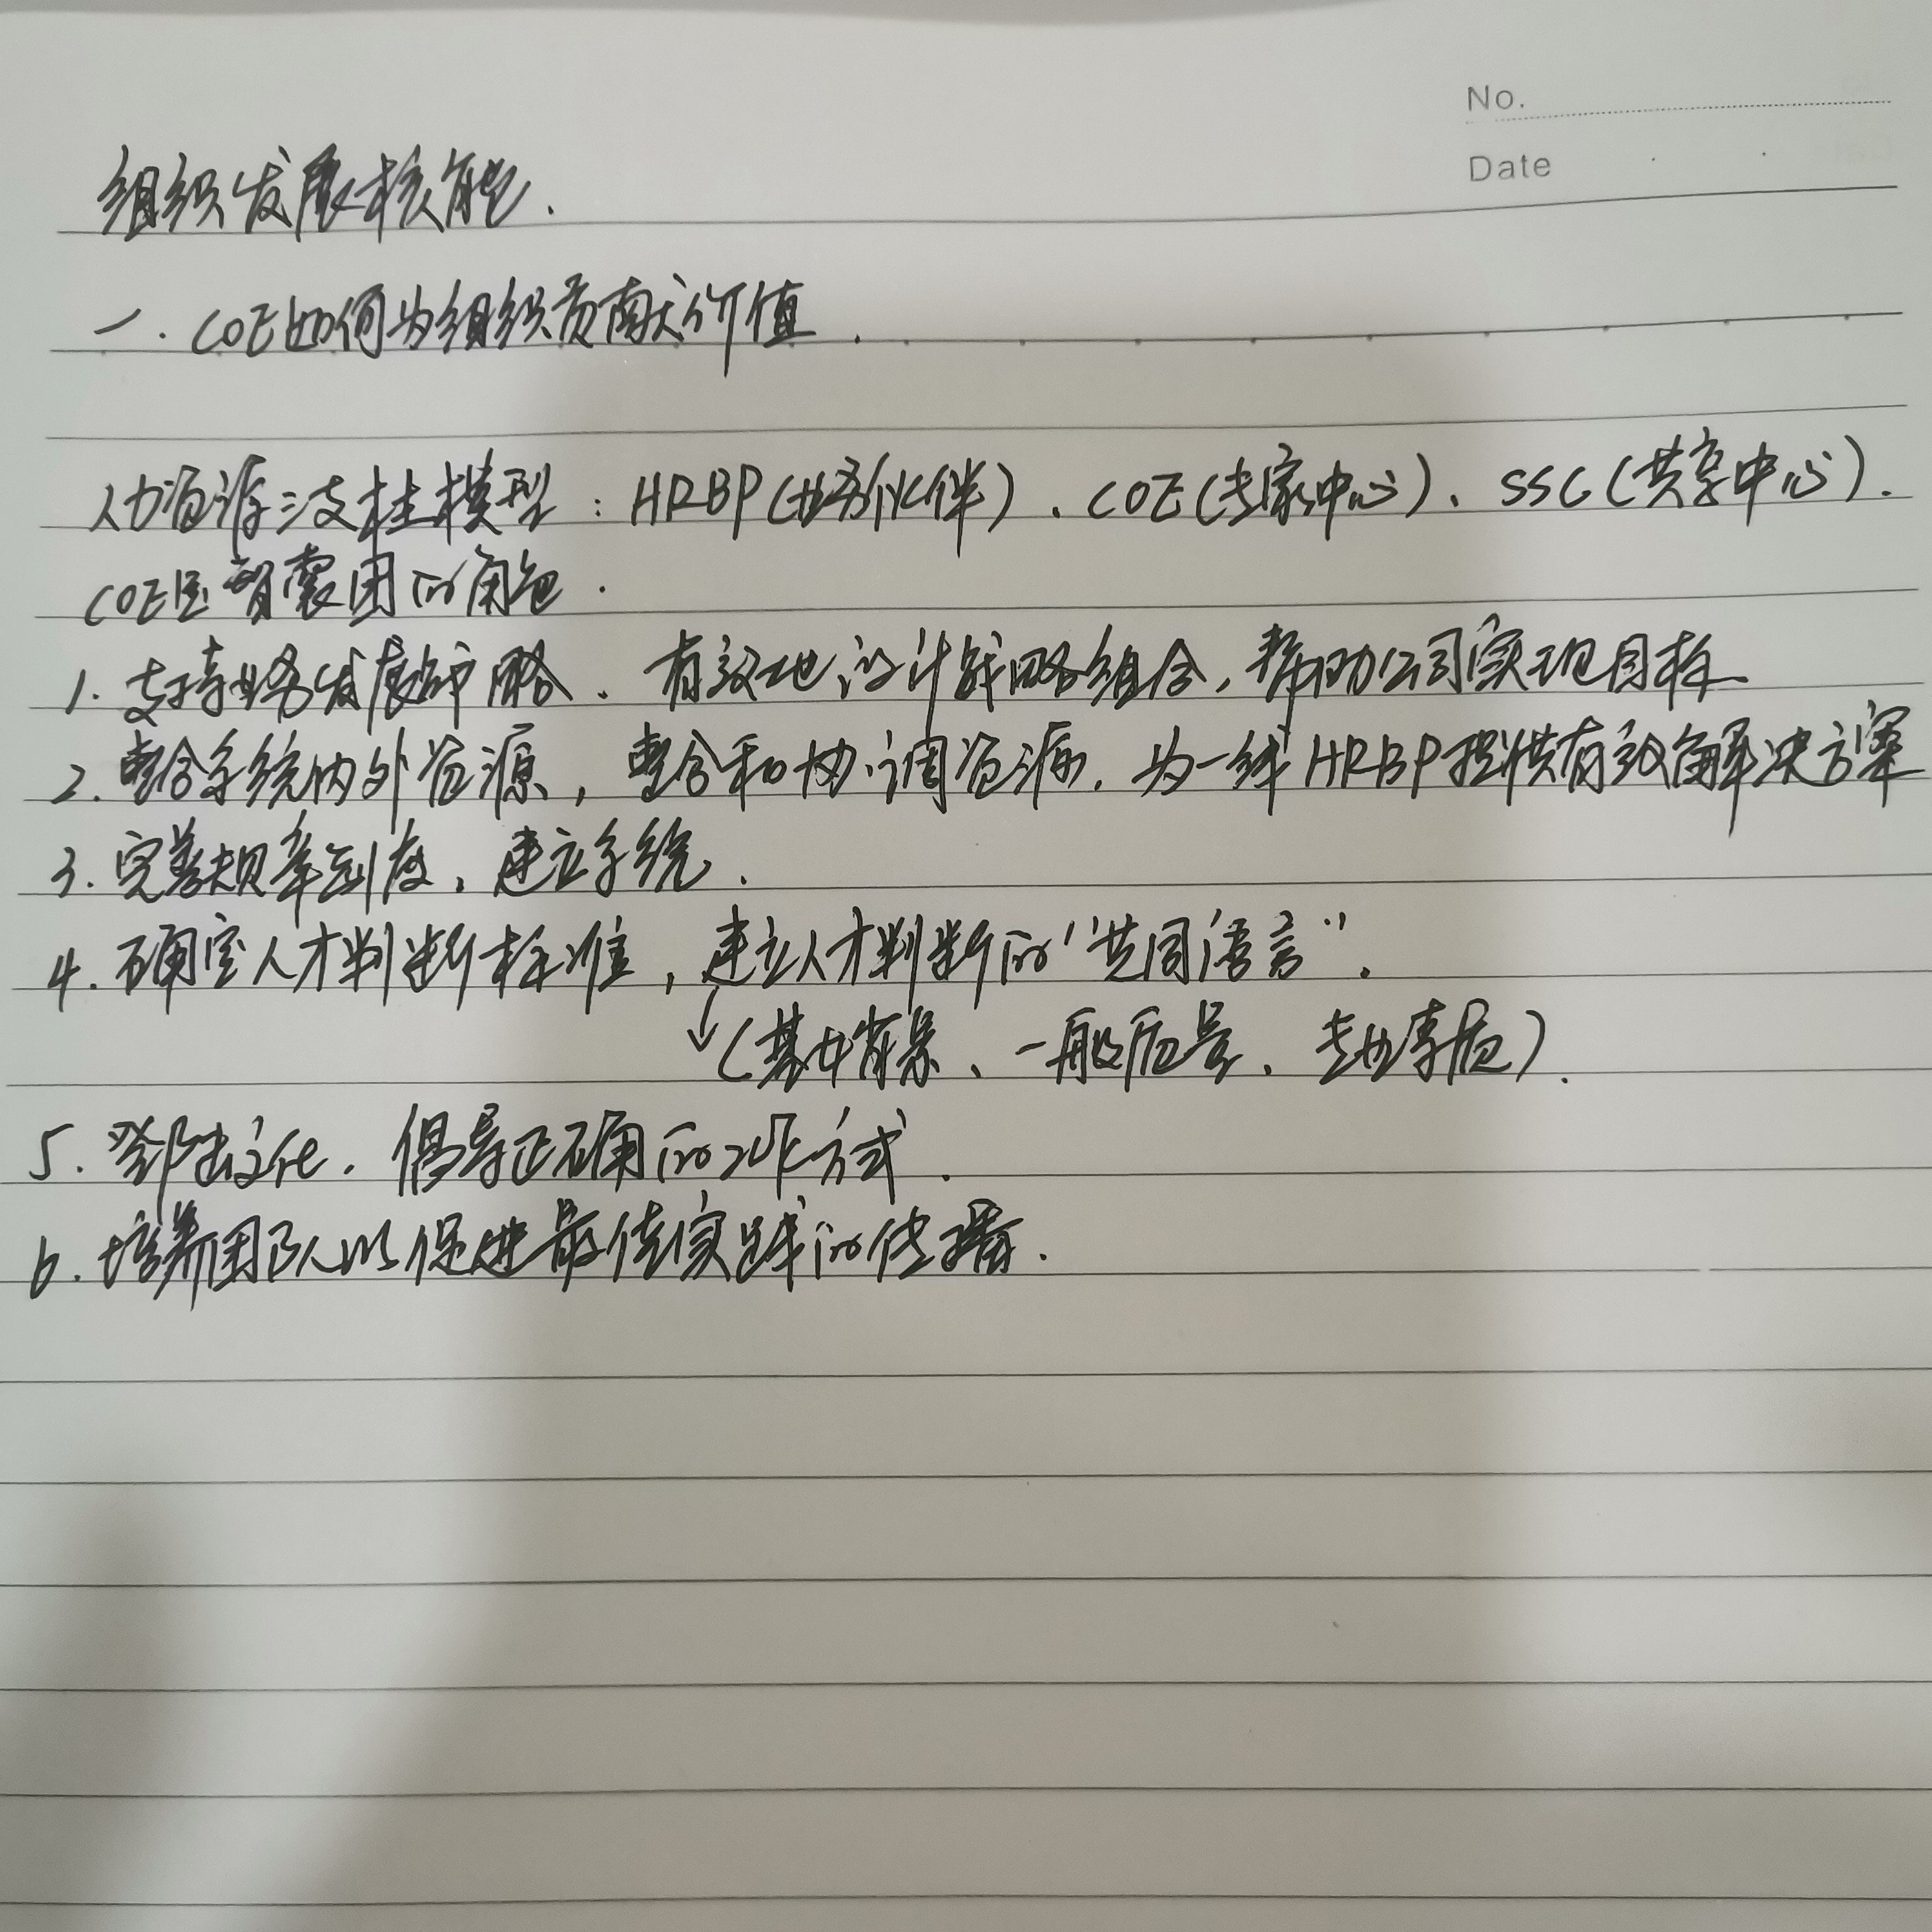 No.
Date
组织发展核能.
一. COE如何为组织贡献价值.
人力资源三支柱模型: HRBP(业务伙伴)、COE(专家中心)、SSC(共享中心).
COE是智囊团的角色.
1. 支持业务发展战略、有效地设计战略组合,帮助公司实现目标
2. 整合系统内外资源,整合和协调资源,为一线HRBP提供有效解决方案
3. 完善规章制度,建立系统.
4. 确定人才判断标准,建立人才判断的"共同语言".
↓(基本背景、一般质量、专业素质).
5. 文化,倡导正确的工作方式.
6. 培养团队以促进最佳实践的传播.